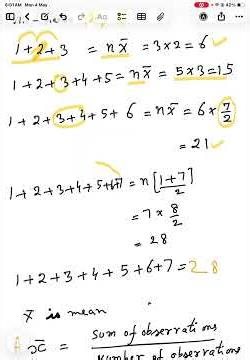 6:01 AM Mon 4 May
42%
1+2+3 = n x̄ = 3×2 = 6 ✓
1+2+3+4+5 = n x̄ = 5×3=15
1+2+3+4+5+6 = n x̄ = 6×7/2
= 21 ✓
1+2+3+4+5+6+7 = n[1+7/2]
= 7×8/2
= 28
1+2+3+4+5+6+7 = 28
x̄ is mean
x̄ = sum of observations / number of observations